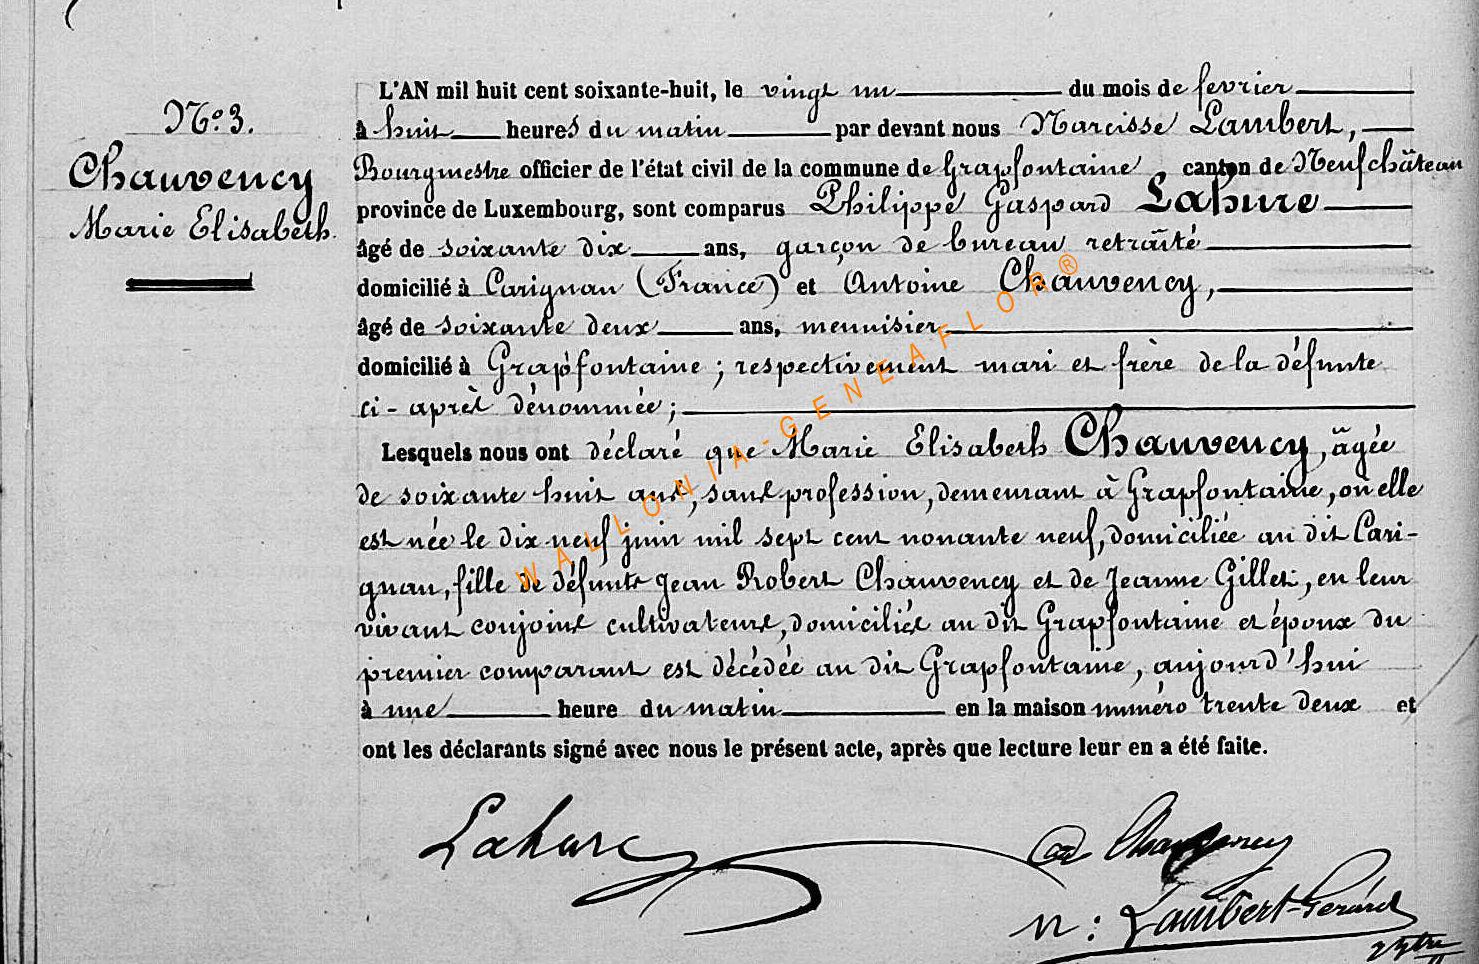 N.º 3.
Chauvency
Marie Elisabeth.
L'AN mil huit cent soixante-huit, le vingt un du mois de fevrier
à huit heures du matin par devant nous Narcisse Lambert,
Bourgmestre officier de l'état civil de la commune de Grapfontaine canton de Neufchâteau
province de Luxembourg, sont comparus Philippe Gaspard Lahure
âgé de soixante dix ans, garçon de bureau retraité
domicilié à Carignan (France) et Antoine Chauvency,
âgé de soixante deux ans, menuisier
domicilié à Grapfontaine ; respectivement mari et frère de la défunte
ci-après dénommée ;
Lesquels nous ont déclaré que Marie Elisabeth Chauvency, âgée
de soixante huit ans, sans profession, demeurant à Grapfontaine, où elle
est née le dix neuf juin mil sept cent nonante neuf, domiciliée au dit Cari-
gnan, fille de défunts Jean Robert Chauvency et de Jeanne Gillet, en leur
vivant conjoins cultivateurs, domiciliés au dit Grapfontaine et époux du
premier comparant est décédée au dit Grapfontaine, aujourd'hui
à une heure du matin en la maison numéro trente deux et
ont les déclarants signé avec nous le présent acte, après que lecture leur en a été faite.
Lahure
Chauvency
N : Lambert-Gérard
WALLONIA-GENEAFLOR®